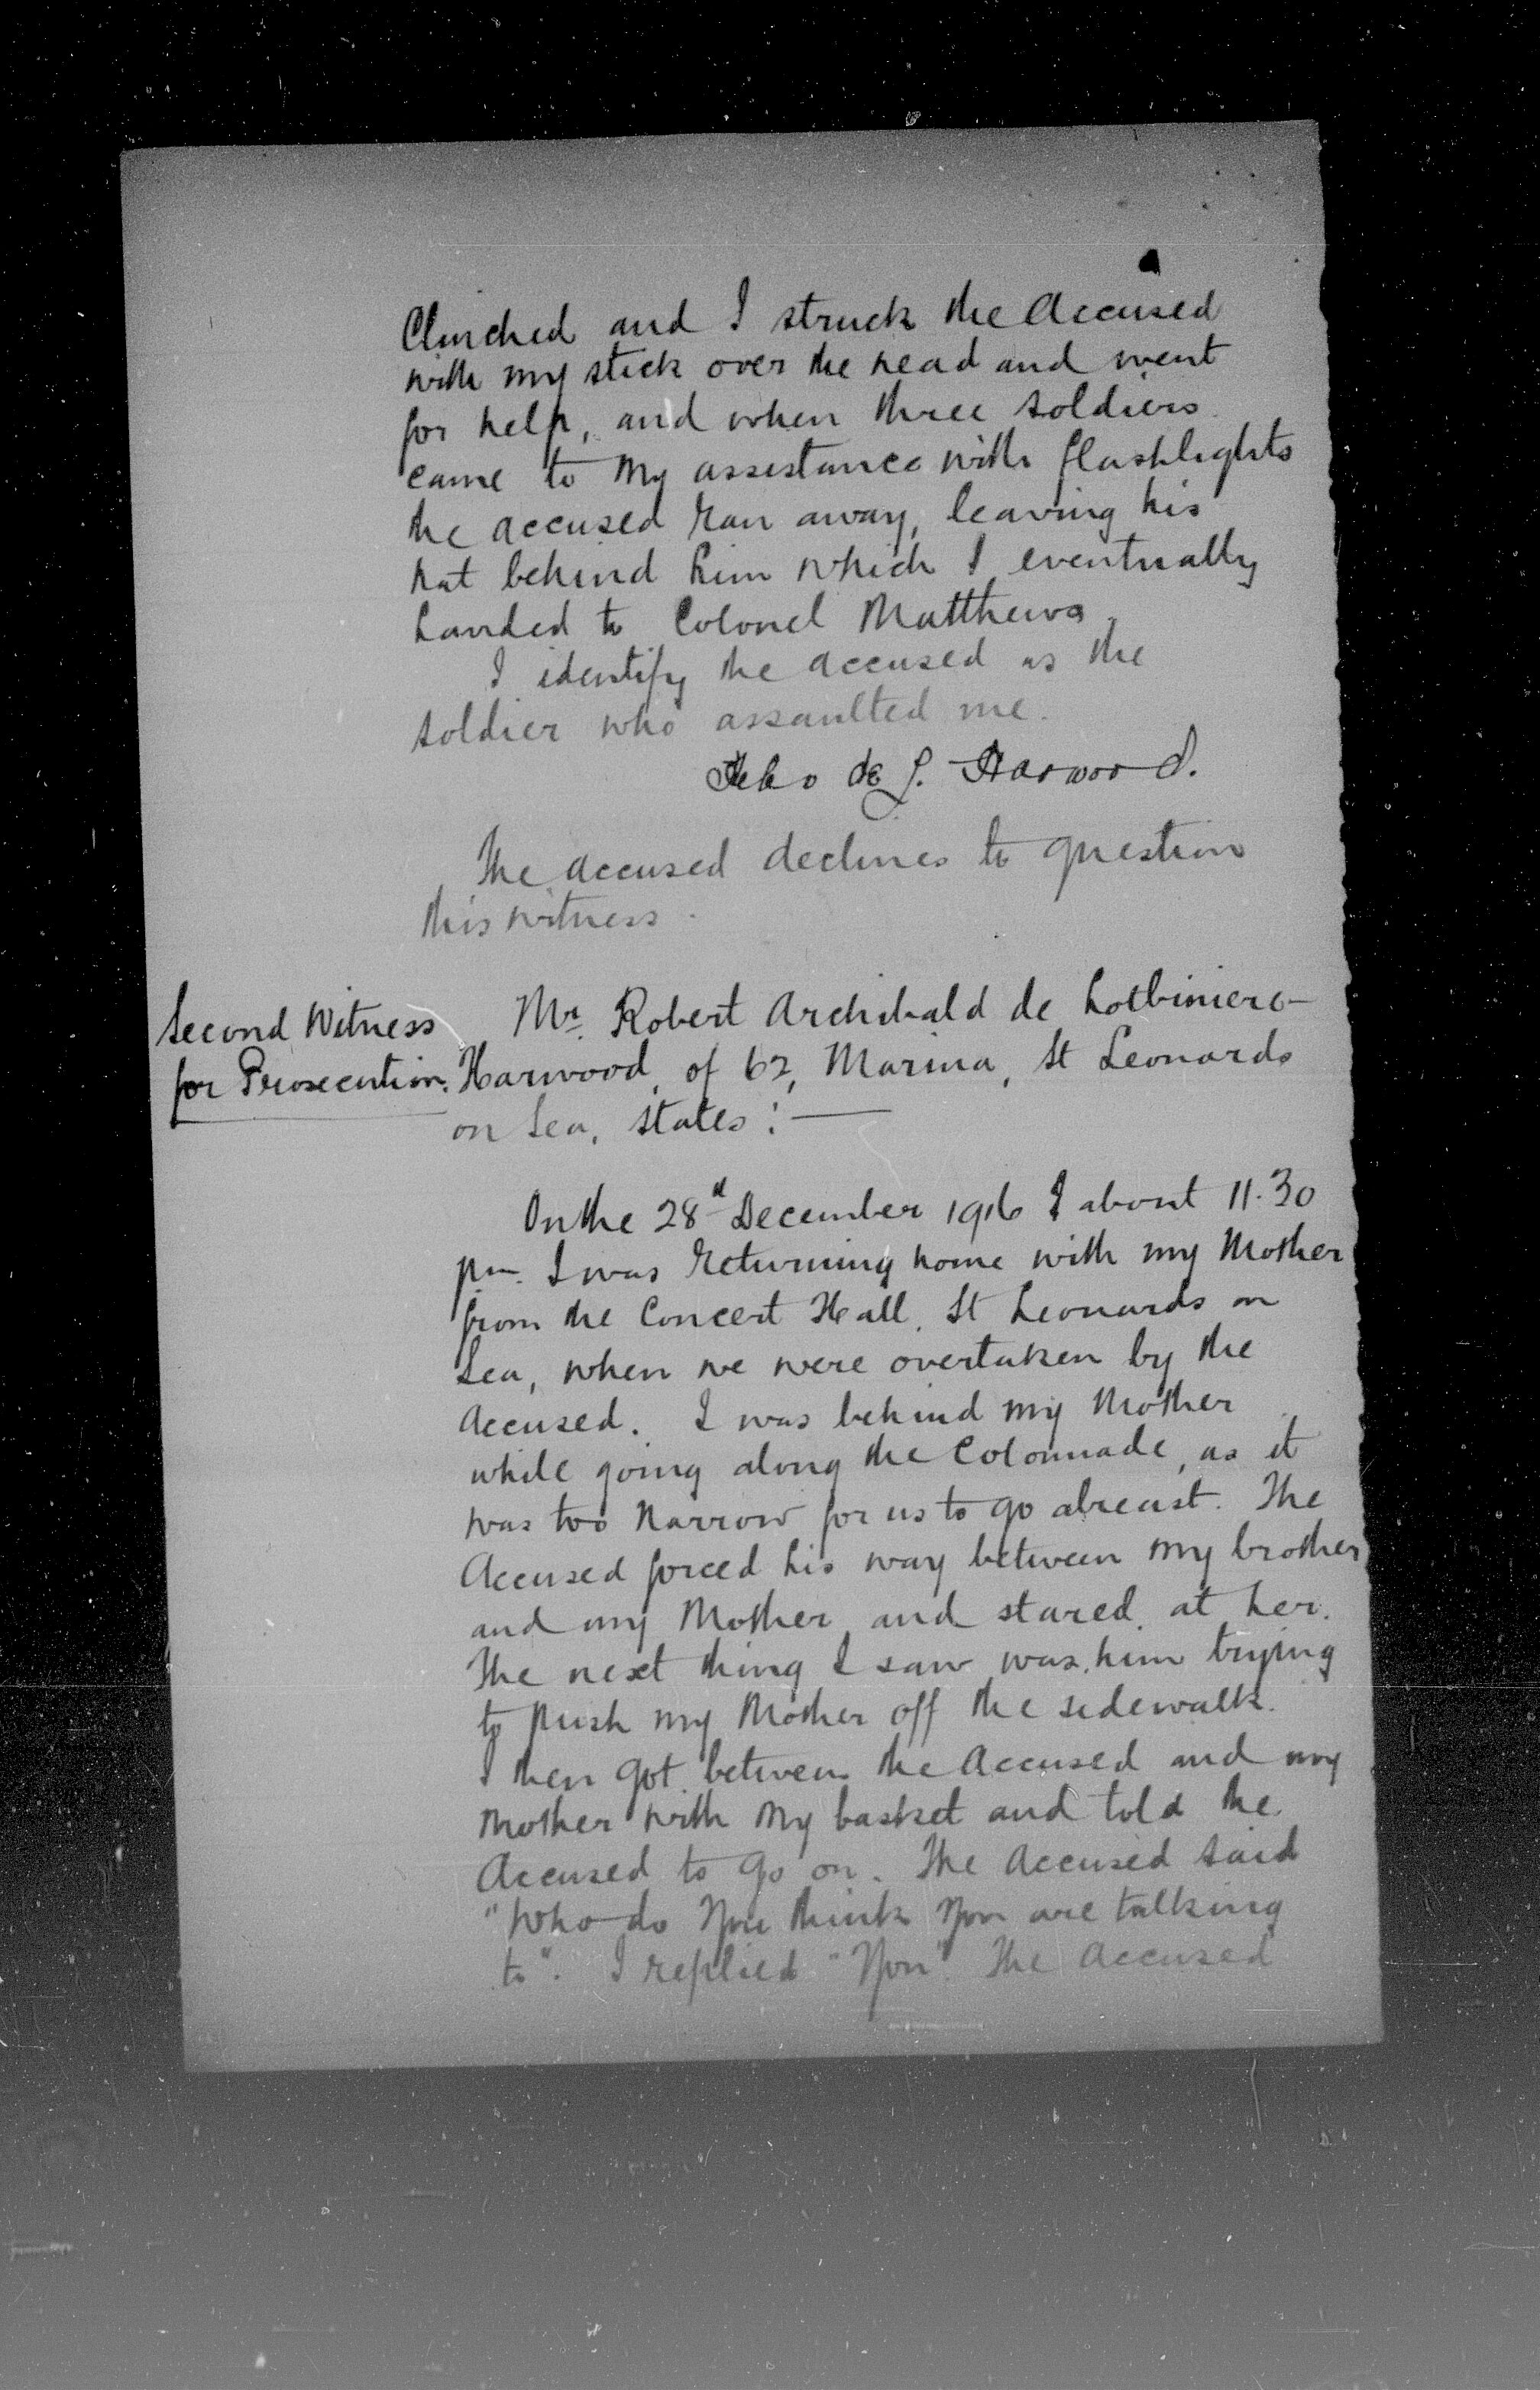 Clinched and I struck the accused
with my stick over the head and went
for help, and when three soldiers
came to my assistance with flashlights
the accused ran away, leaving his
hat behind him which I eventually
handed to Colonel Matthews.
I identify the accused as the
soldier who assaulted me.
de L. Harwood.
The accused declines to question
this witness.
Second Witness
for Prosecution.
Mr. Robert Archibald de Lotbiniere-
Harwood, of 62, Marina, St Leonards
on Sea, states :—
On the 28th December 1916 I about 11.30
pm. I was returning home with my Mother
from the Concert Hall, St Leonards on
Sea, when we were overtaken by the
accused. I was behind my Mother
while going along the Colonnade, as it
was too narrow for us to go abreast. The
Accused forced his way between my brother
and my Mother and stared at her.
The next thing I saw was him trying
to push my Mother off the sidewalk.
I then got between the accused and my
Mother with my basket and told the
accused to go on. The accused said
"Who do you think you are talking
to". I replied "You". The accused